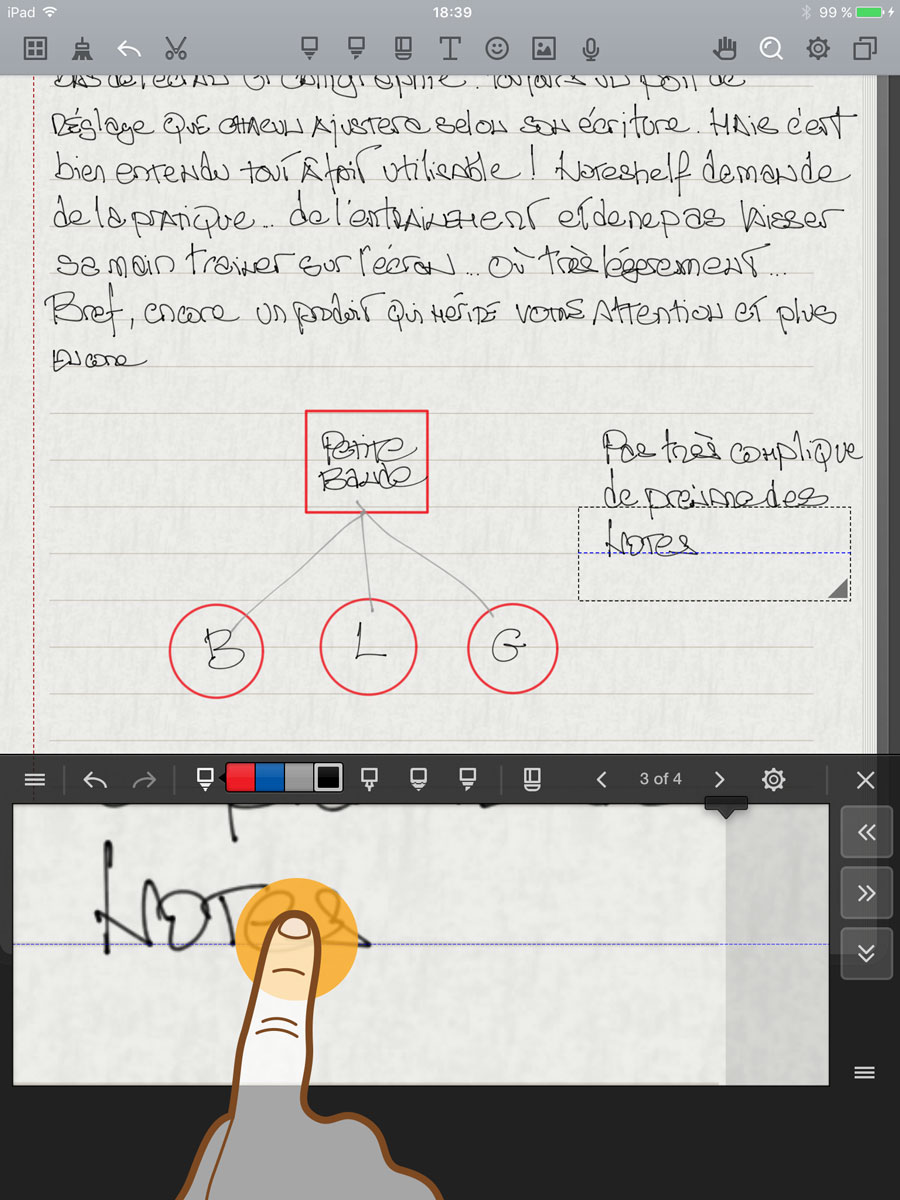 iPad 18:39 99 %
réglage que chacun ajustera selon son écriture. Mais c'est
bien entendu tout à fait utilisable ! Noteshelf demande
de la pratique... de l'entraînement et de ne pas laisser
sa main trainer sur l'écran... où très légèrement...
Bref, encore un produit qui mérite votre attention et plus
encore
Petite
Bande
Pas très complique
de des
Notes
B L G
3 of 4
Notes